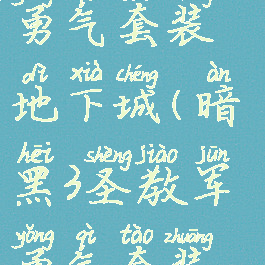 勇气套装
dì xià chéng àn
地下城(暗
hēi shèng jiào jūn
黑3圣教军
yǒng qì tào zhuāng